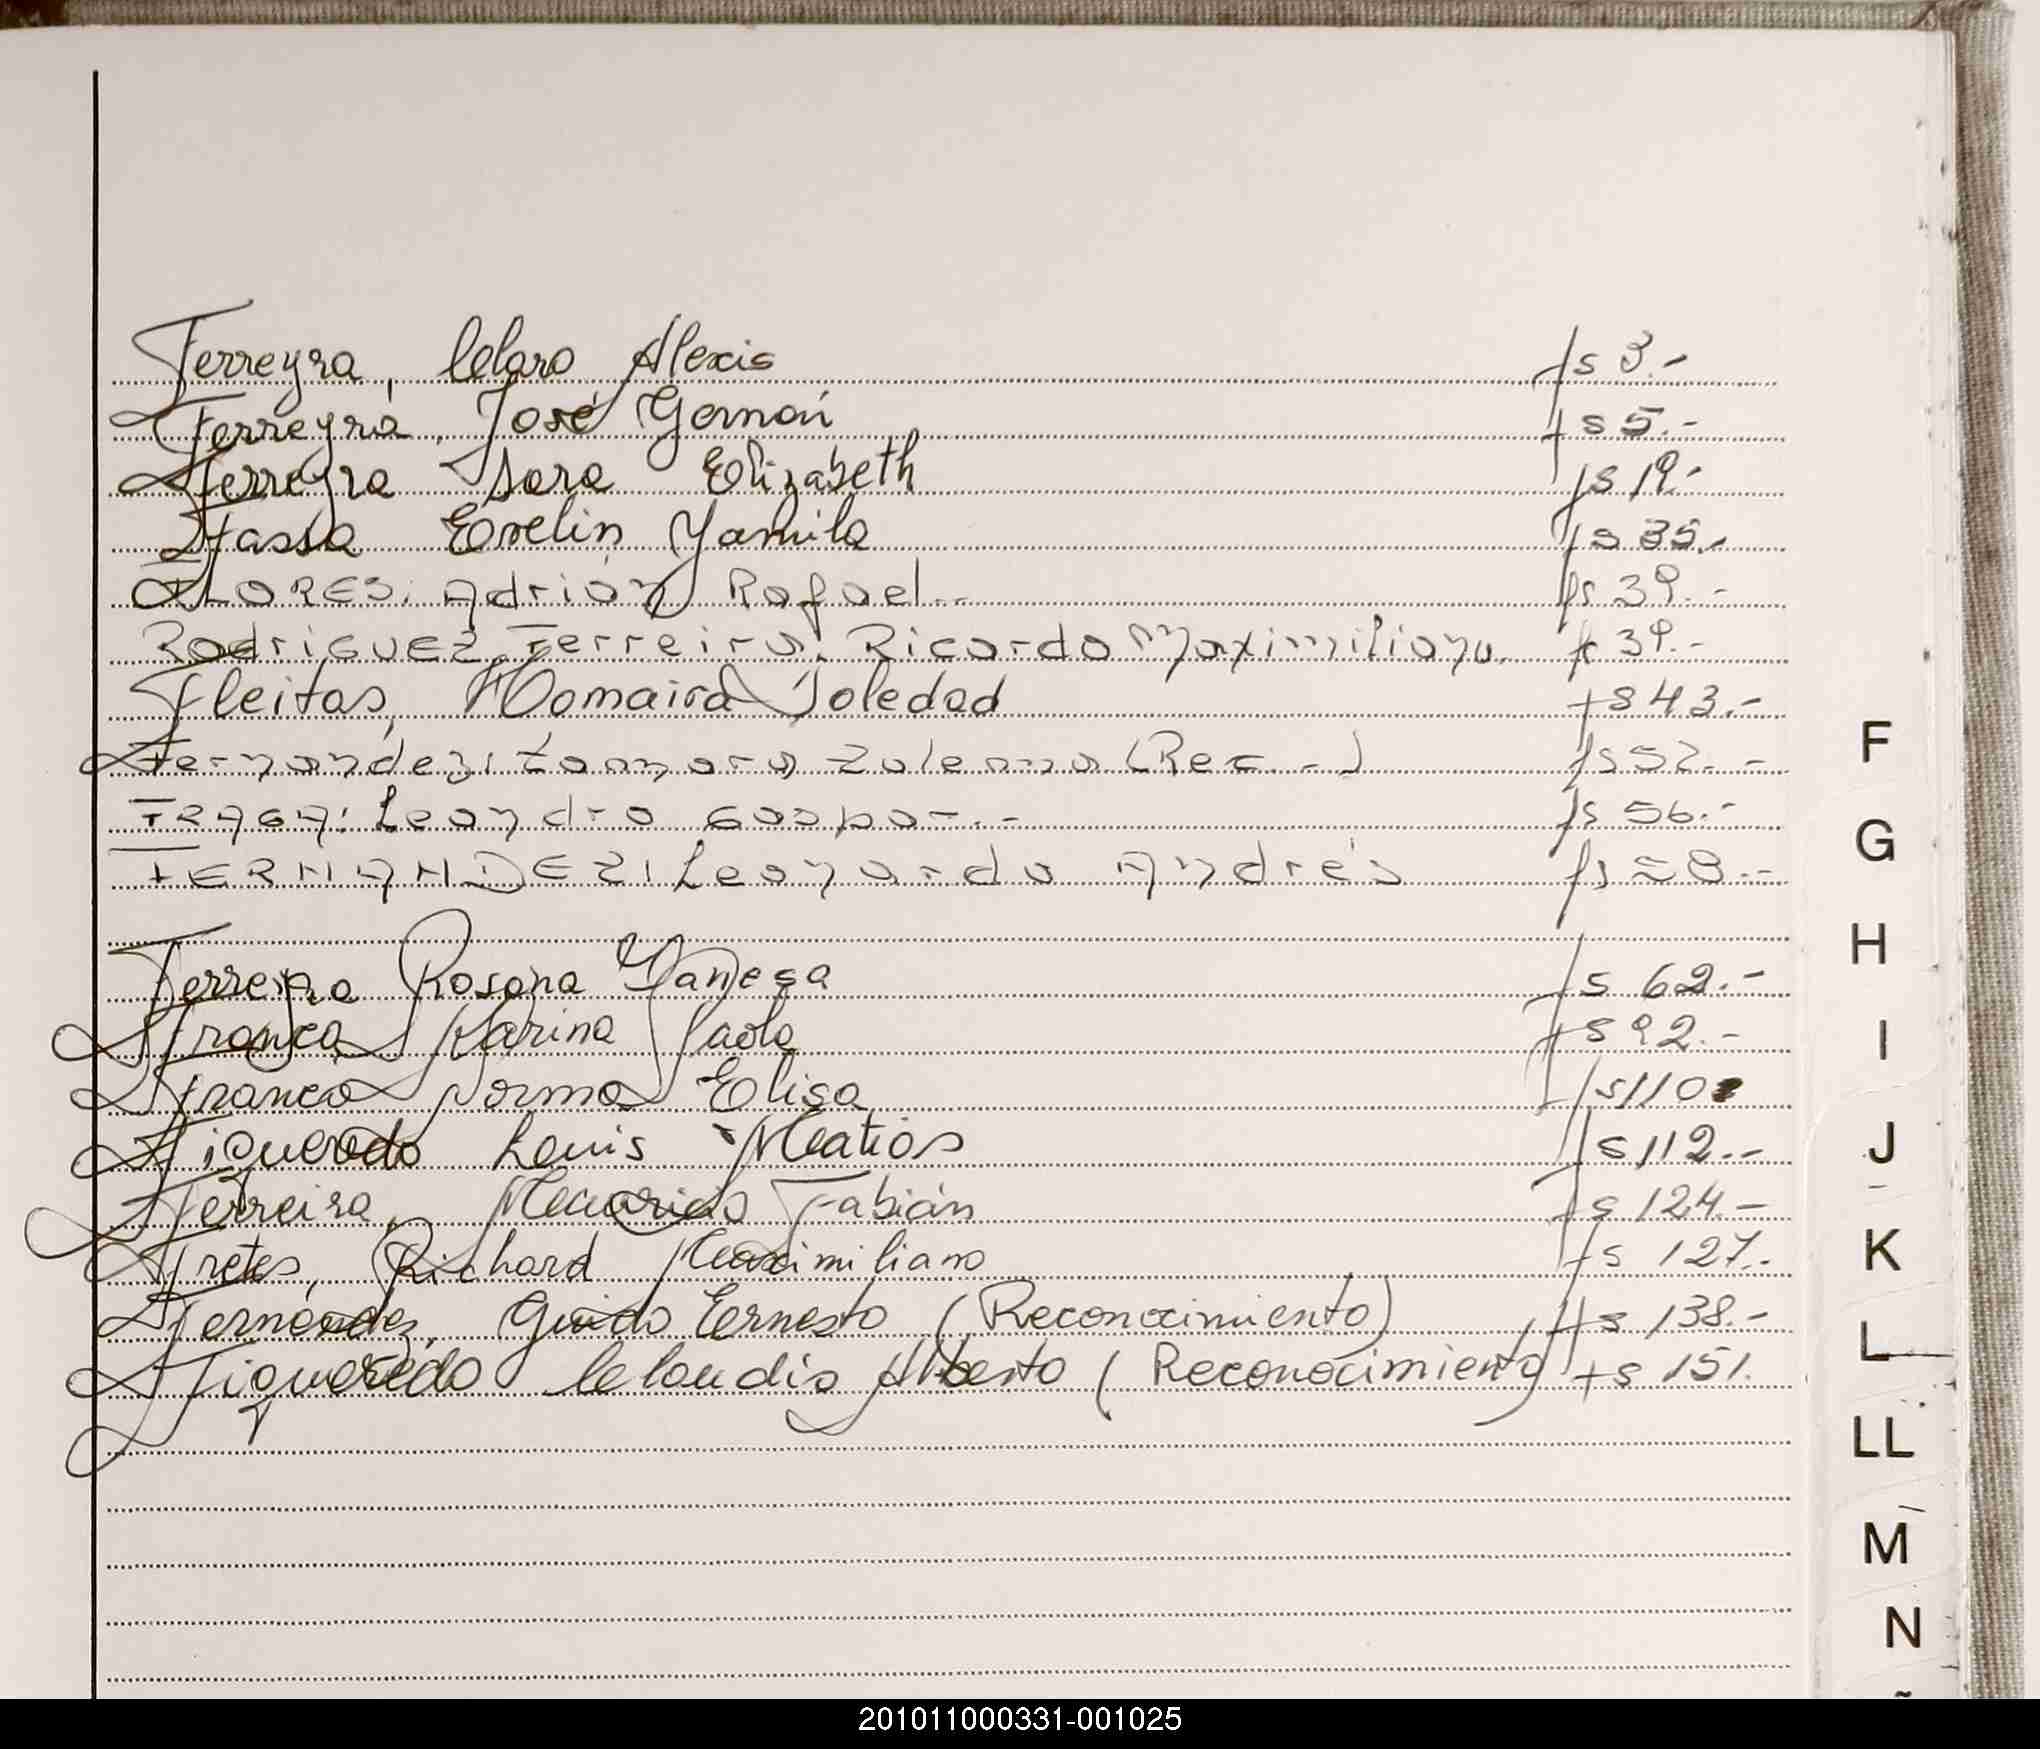 Ferreyra, Claro Alexis fs 3.-
Ferreyra, José Germán fs 5.-
Ferreyra Sara Elizabeth fs 19.-
Fassa Evelin Yamila fs 35.-
FLORES: Adrián Rafael.- fs 39.-
RodriGUEZ Ferreira: Ricardo Maximiliano. fs 39.-
Fleitas, Romaira Soledad fs 43.-
Fernandez: Tamara Zulema (Rec.-) fs 52.-
FRAGA: Leandro Gaspar.- fs 56.-
FERNANDEZ: Leonardo Andrés fs 58.-
Ferreyra Rosana Vanesa fs 62.-
Franco Karina Paola fs 92.-
Franco Norma Elisa fs 110
Figueredo Luis Matias fs 112.-
Ferreira, Mauricio Fabián fs 124.-
Fretes, Richard Maximiliano fs 127.-
Fernández, Guido Ernesto (Reconocimiento) fs 138.-
Figueredo Claudio Alberto (Reconocimiento) fs 151.
F
G
H
I
J
K
L
LL
M
N
201011000331-001025